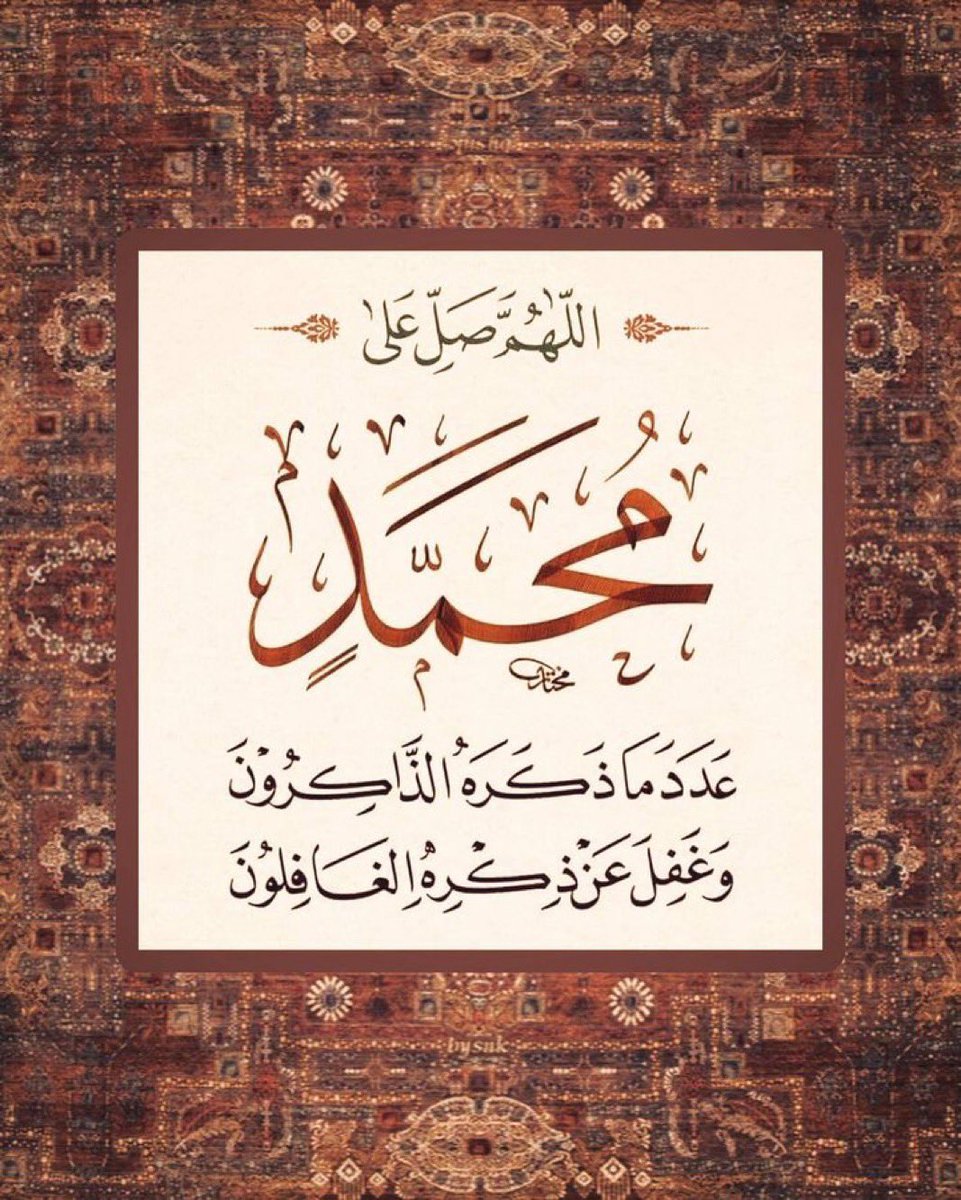 اللّٰهُمَّ صَلِّ عَلىٰ
مُحَمَّدٍ
مختار
عَدَدَ مَا ذَكَرَهُ الذَّاكِرُوْنَ
وَغَفِلَ عَنْ ذِكْرِهِ الغَافِلُوْنَ
bysnk